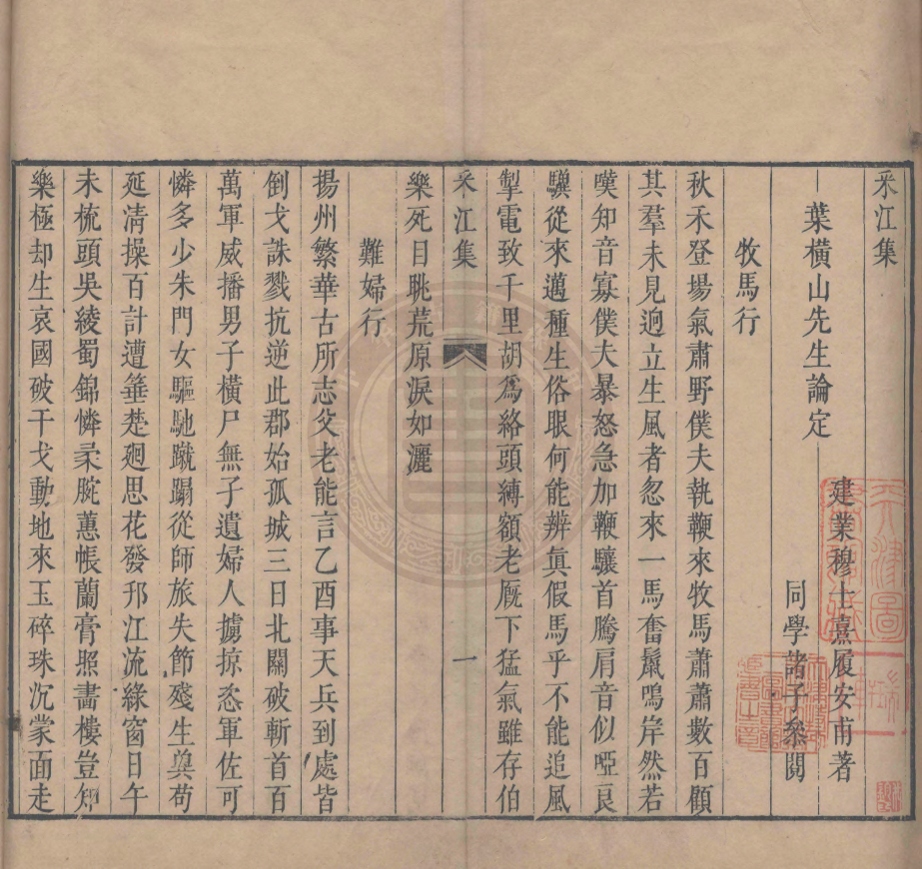 采江集
建業穆士熹履安甫著
葉橫山先生論定
同學諸子叅閱
牧馬行
秋禾登場氣肅野僕夫執鞭來牧馬蕭蕭數百顧
其羣未見逈立生風者忽來一馬奮鬣鳴岸然若
嘆知音寡僕夫暴怒急加鞭驤首騰肩音似啞良
驥從來邁種生俗眼何能辨眞假馬乎不能追風
掣電致千里胡爲絡頭縛額老厩下猛氣雖存伯
采江集
一
樂死日眺荒原淚如灑
難婦行
揚州繁華古所志父老能言乙酉事天兵到處皆
倒戈誅戮抗逆此郡始孤城三日北關破斬首百
萬軍威播男子橫尸無子遺婦人擄掠恣軍佐可
憐多少朱門女驅馳蹴蹋從師旅失節殘生奠苟
延淸操百計遭箠楚廻思花發邗江流綠窗日午
未梳頭吳綾蜀錦憐柔腕蕙帳蘭膏照畵樓豈知
樂極却生哀國破干戈動地來玉碎珠沉蒙面走